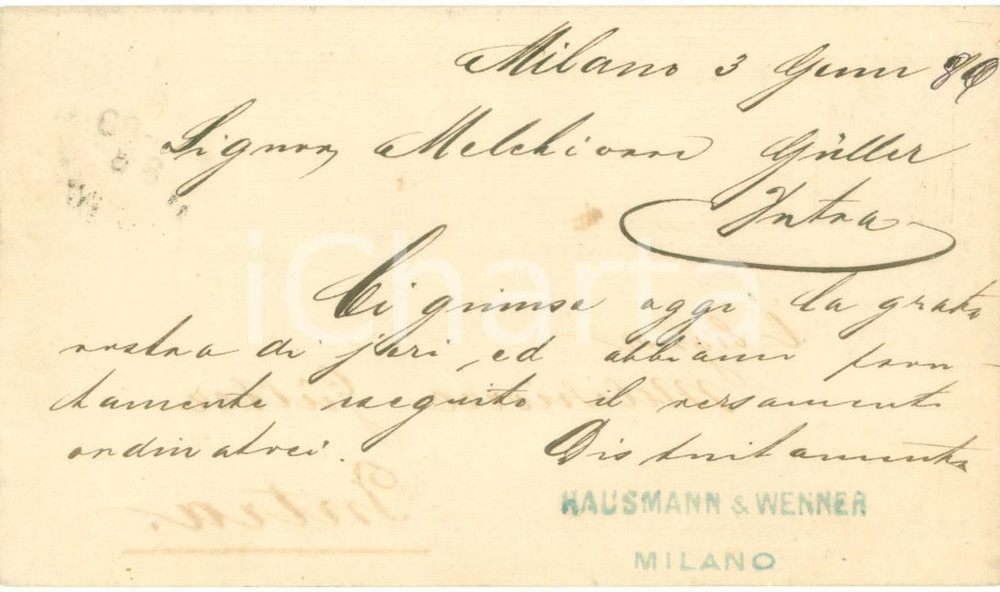 Milano 3 Genn 89
Signor Melchiorre Güller
Intra
Ci giunse oggi la grata
vostra di jeri, ed abbiamo pron-
tamente eseguito il versamento
ordinatoci. Distintamente
HAUSMANN & WENNER
MILANO
iCharta
Intra.